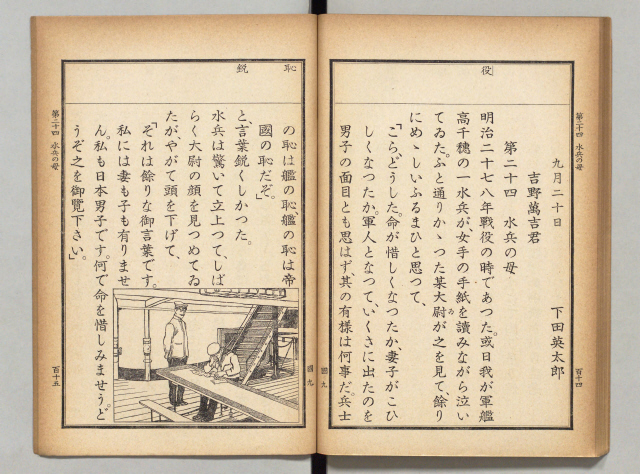 役
九月二十日
下田英太郎
吉野萬吉君
第二十四 水兵の母
明治二十七八年戰役の時であつた。或日我が軍艦
高千穗の一水兵が女手の手紙を讀みながら泣い
てゐた。ふと通りかゝつた某大尉が之を見て、餘り
にめゝしいふるまひと思つて、
「こら、どうした。命が惜しくなつたか、妻子がこひ
しくなつたか。軍人となつて、いくさに出たのを
男子の面目とも思はず、其の有樣は何事だ。兵士
第二十四 水兵の母
百十四
國九
恥 鋭
の恥は艦の恥、艦の恥は帝
國の恥だぞ。」
と、言葉鋭くしかつた。
水兵は驚いて立上つて、しば
らく大尉の顔を見つめてゐ
たが、やがて頭を下げて、
「それは餘りな御言葉です。
私には妻も子も有りませ
ん。私も日本男子です。何で命を惜しみませう。ど
うぞ之を御覽下さい。」
第二十四 水兵の母
百十五
國九